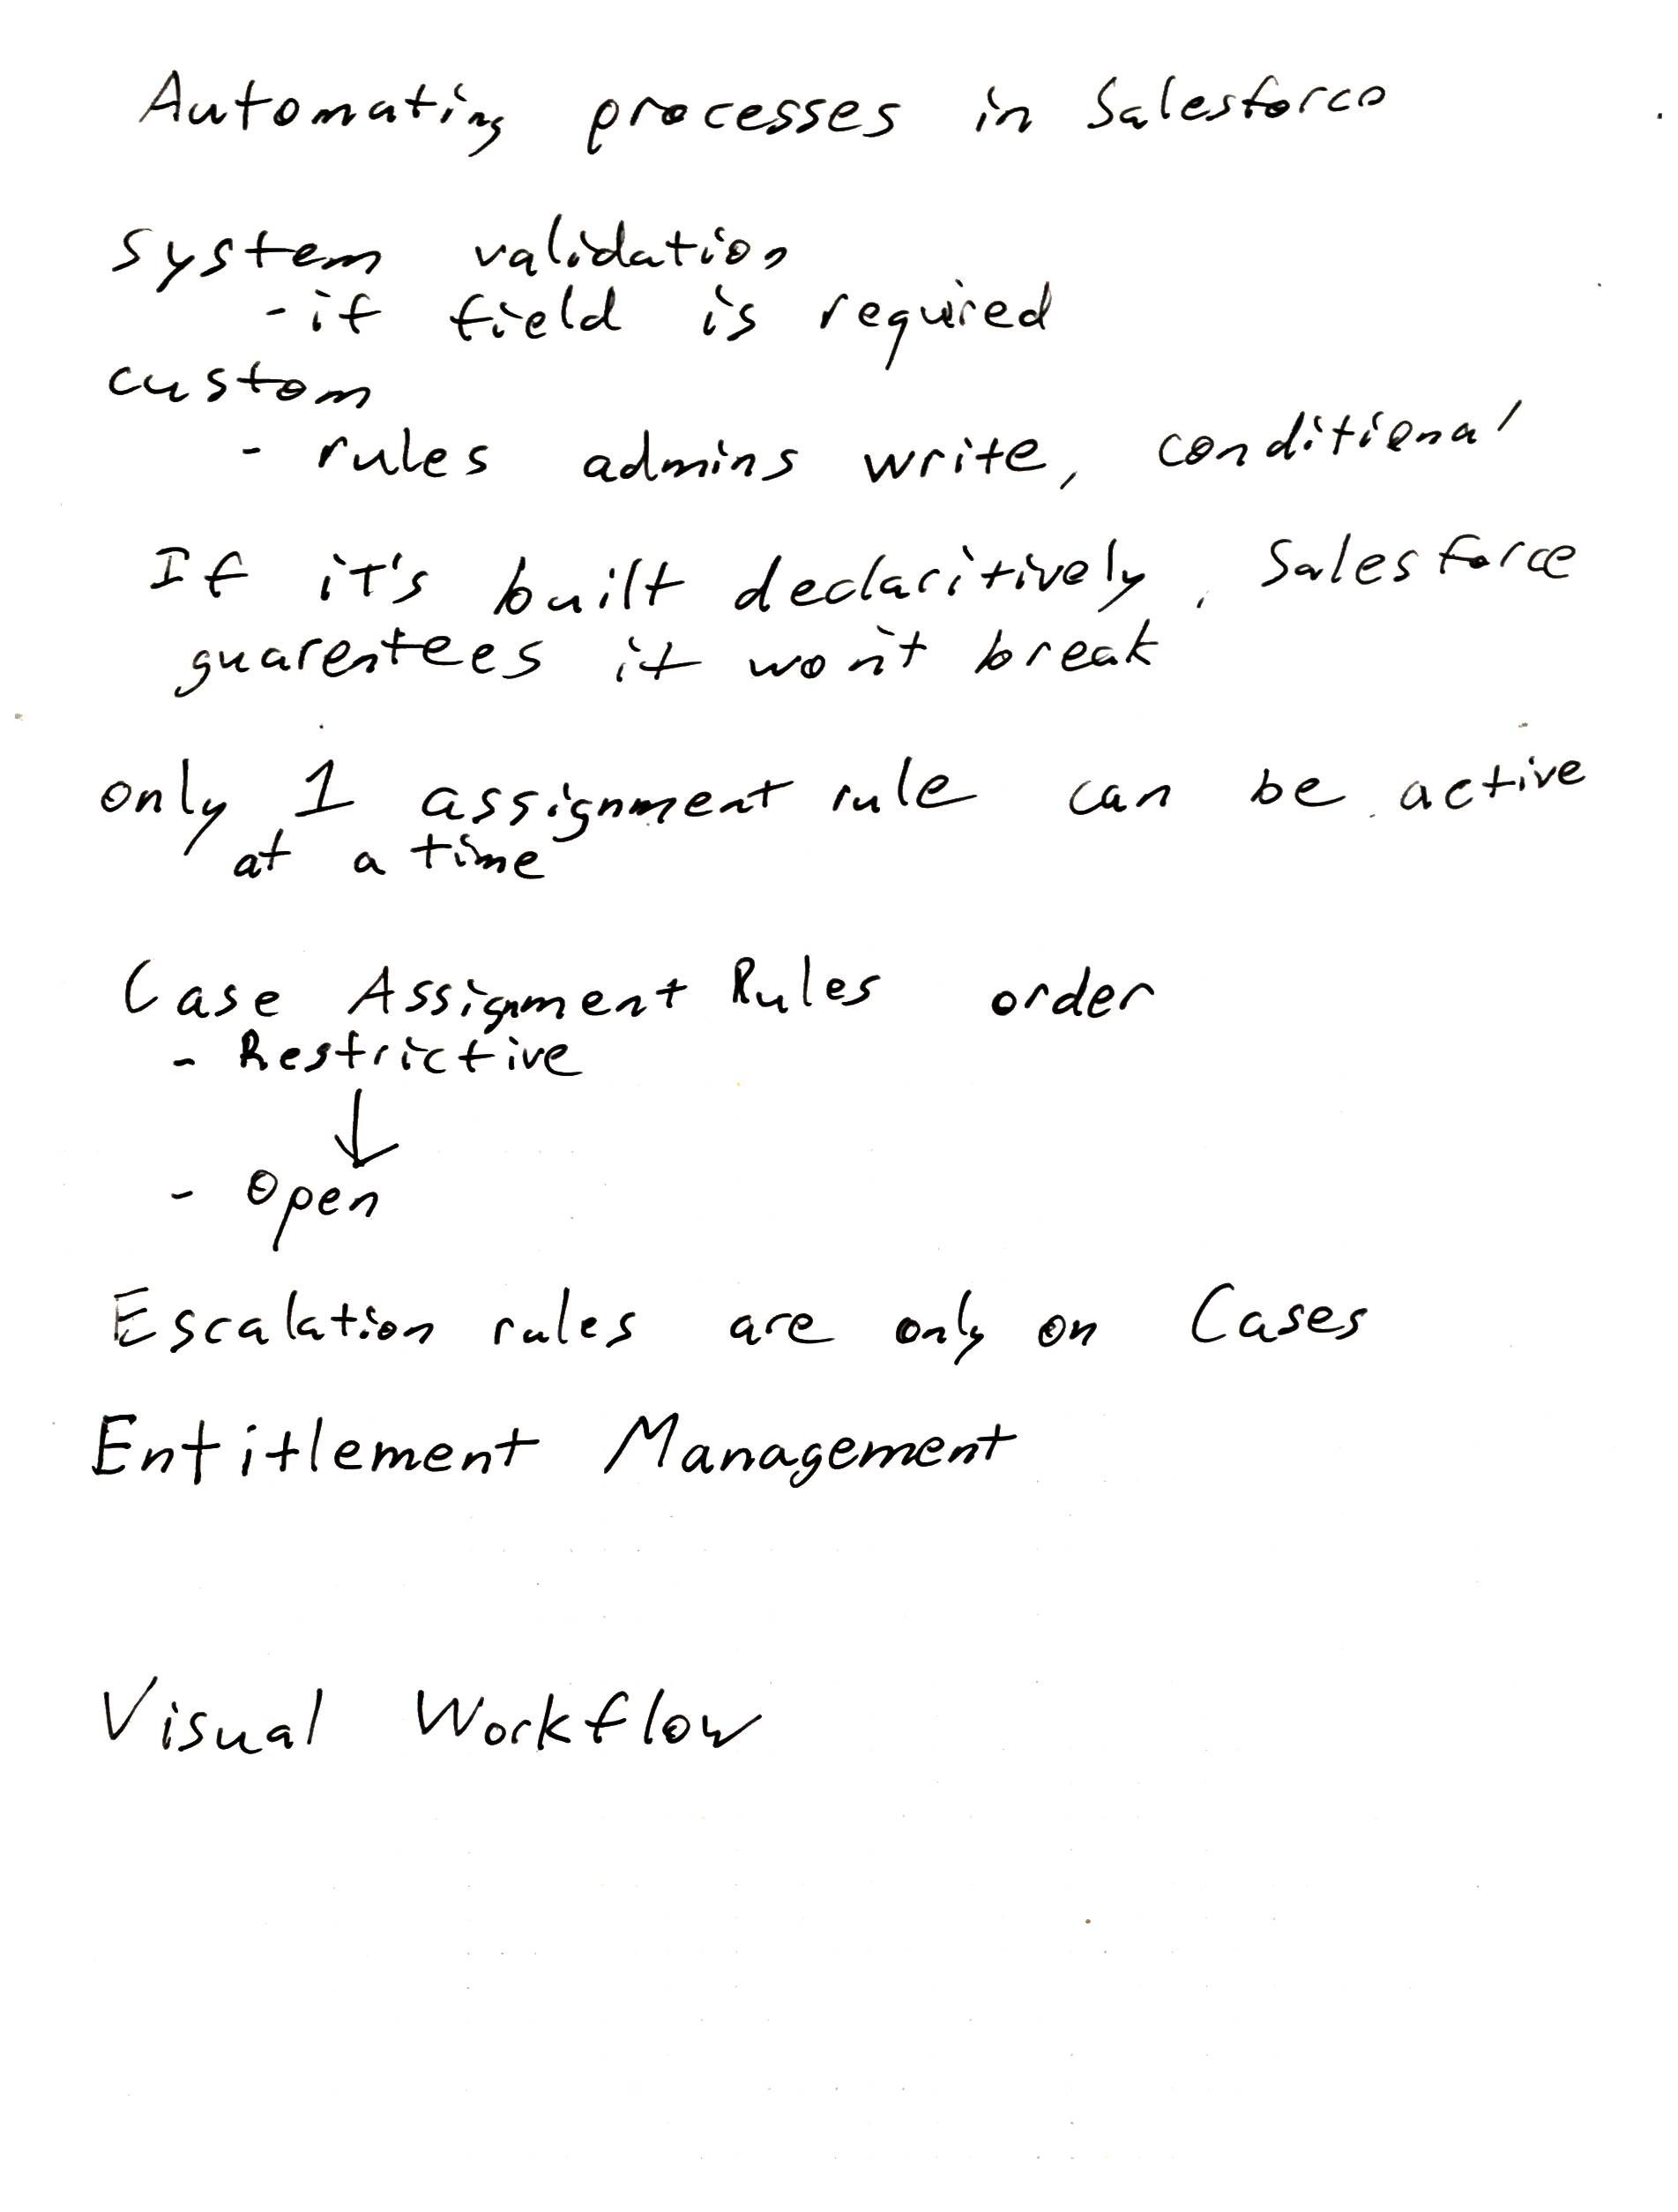 Automating processes in Salesforce
system validation
- if field is required
custom
- rules admins write, conditional
If it's built declaritively, Salesforce
guarentees it won't break
only 1 assignment rule can be active
at a time
Case Assignment Rules order
- Restrictive
↓
- Open
Escalation rules are only on Cases
Entitlement Management
Visual Workflow